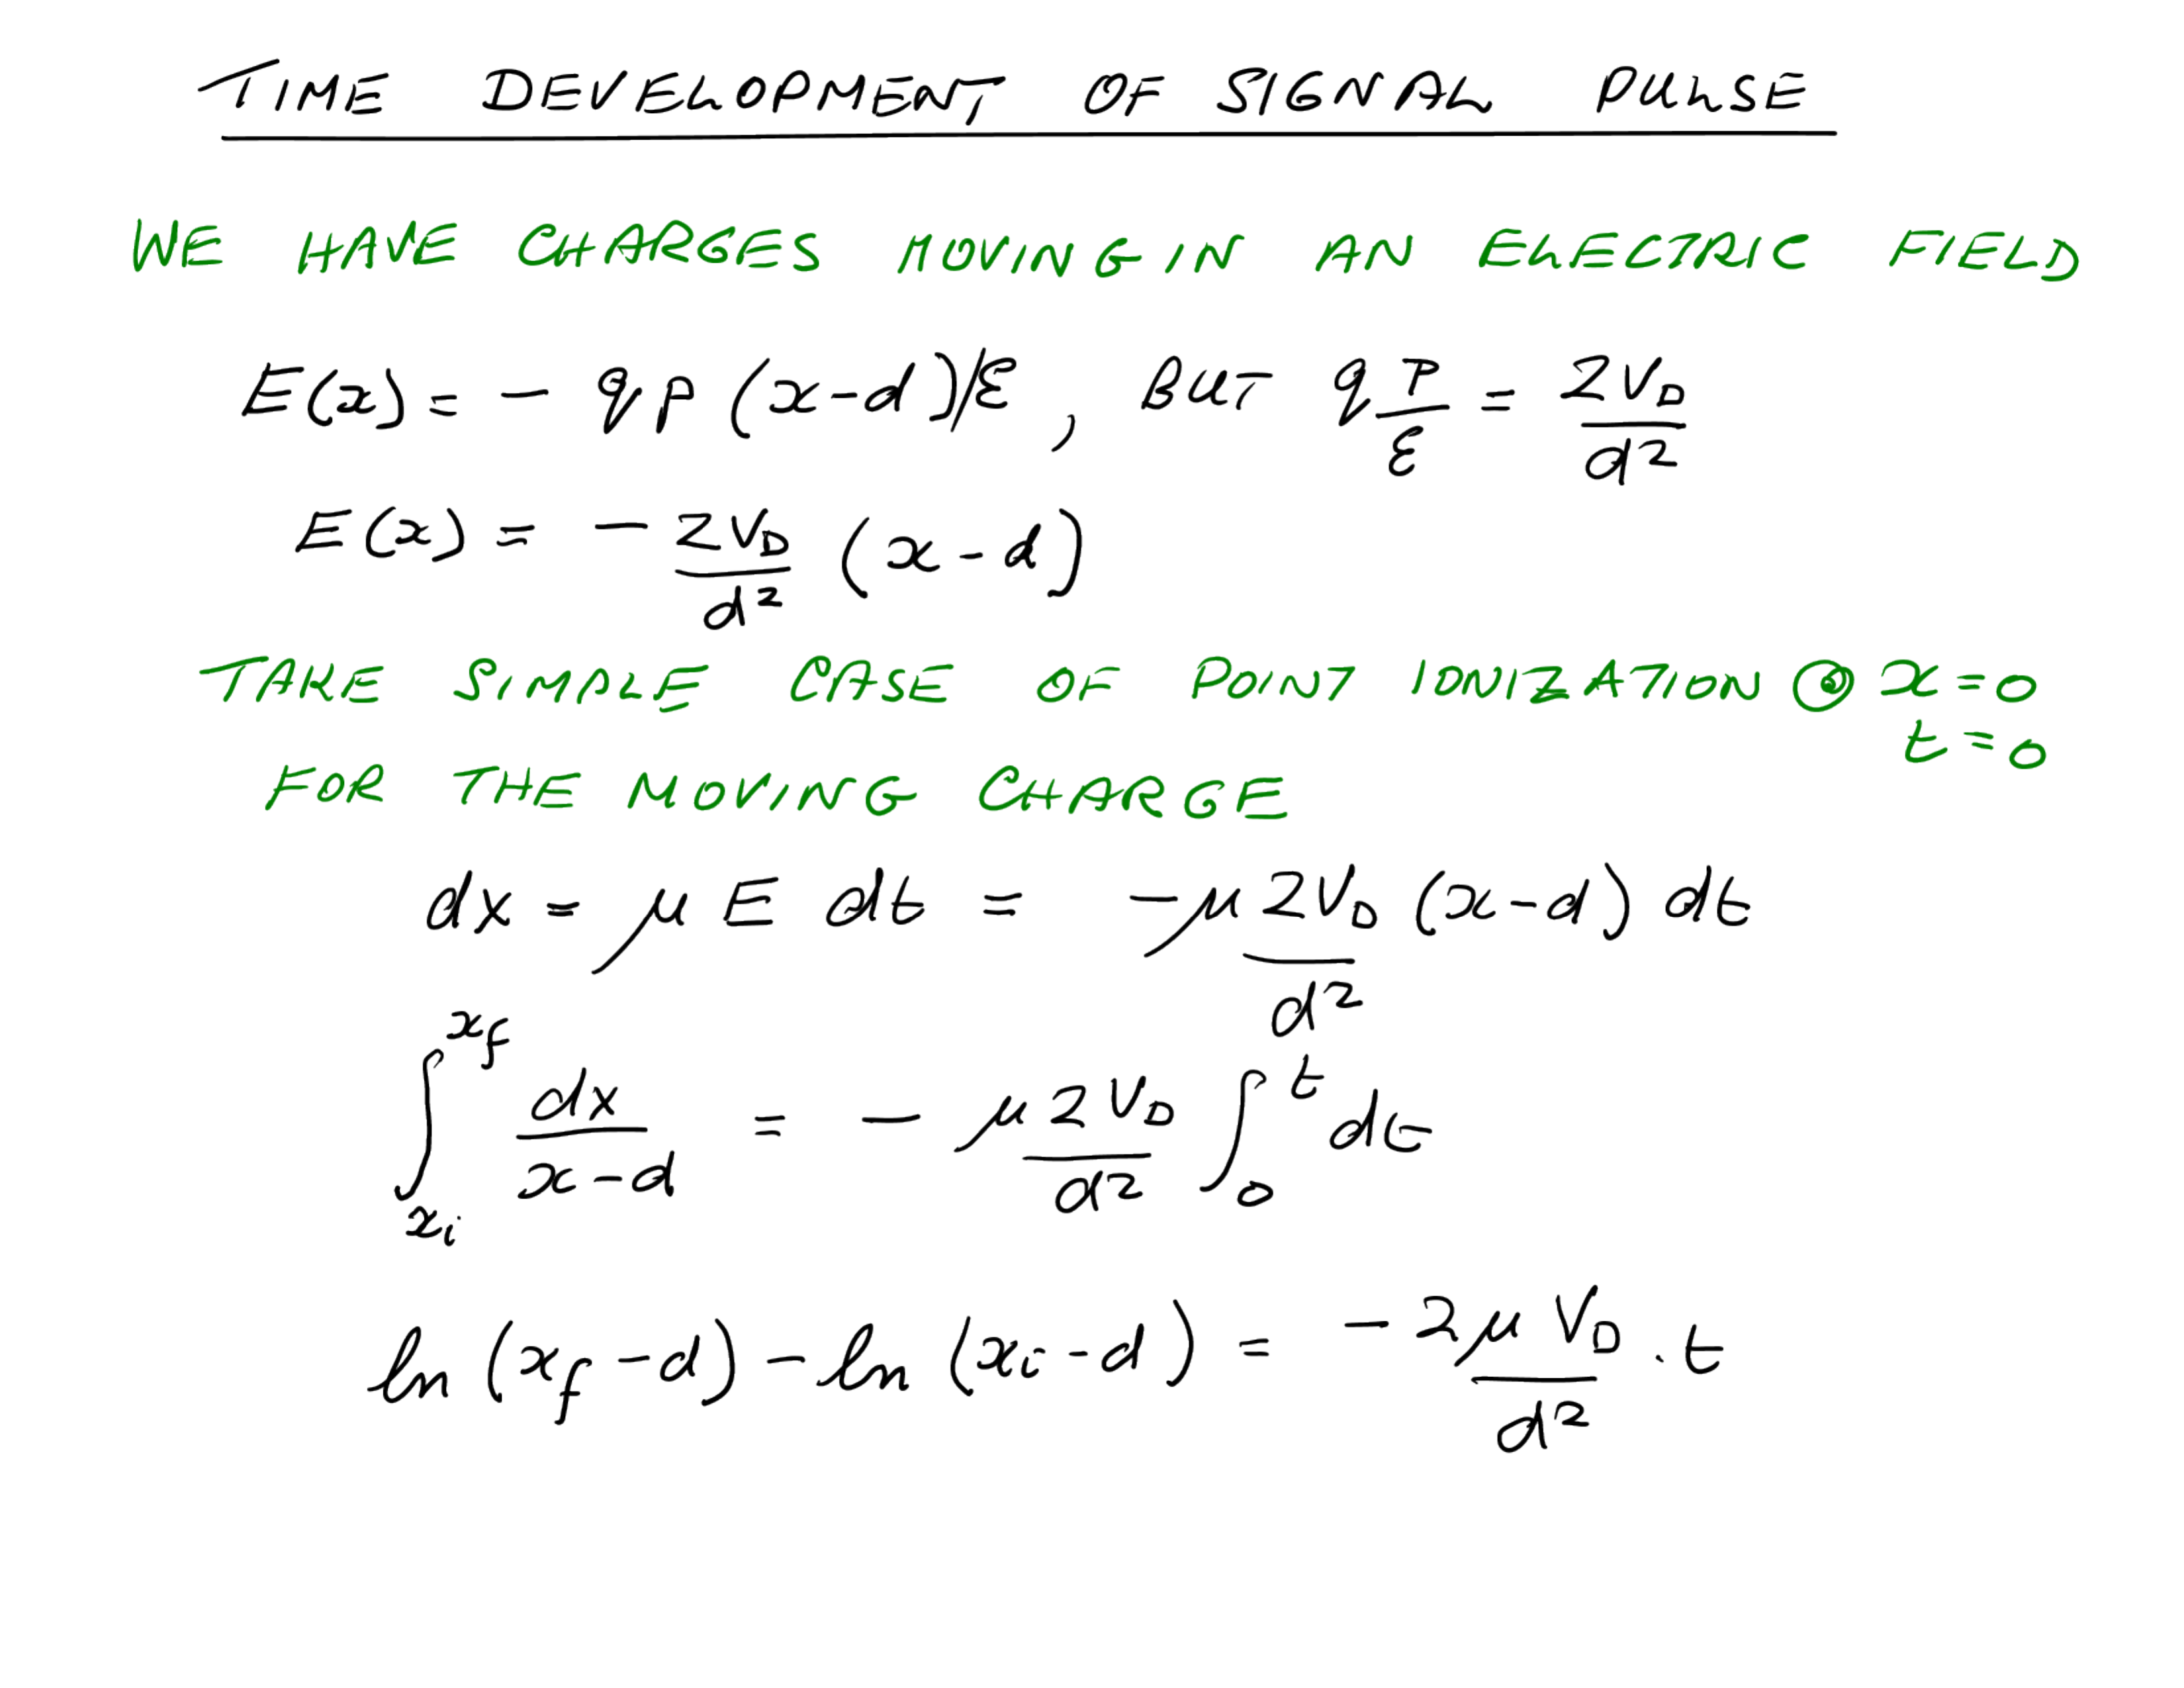 TIME DEVELOPMENT OF SIGNAL PULSE
WE HAVE CHARGES MOVING IN AN ELECTRIC FIELD
E(x) = - qp (x-d)/ε , BUT q P/ε = 2V_D/d²
E(x) = - 2V_D/d² (x-d)
TAKE SIMPLE CASE OF POINT IONIZATION @ x=0
t=0
FOR THE MOVING CHARGE
dx = μ E dt = -μ 2V_D/d² (x-d) dt
∫_{x_i}^{x_f} dx/(x-d) = - μ 2V_D/d² ∫_0^t dt
ln (x_f-d) - ln (x_i-d) = -2μV_D/d² . t